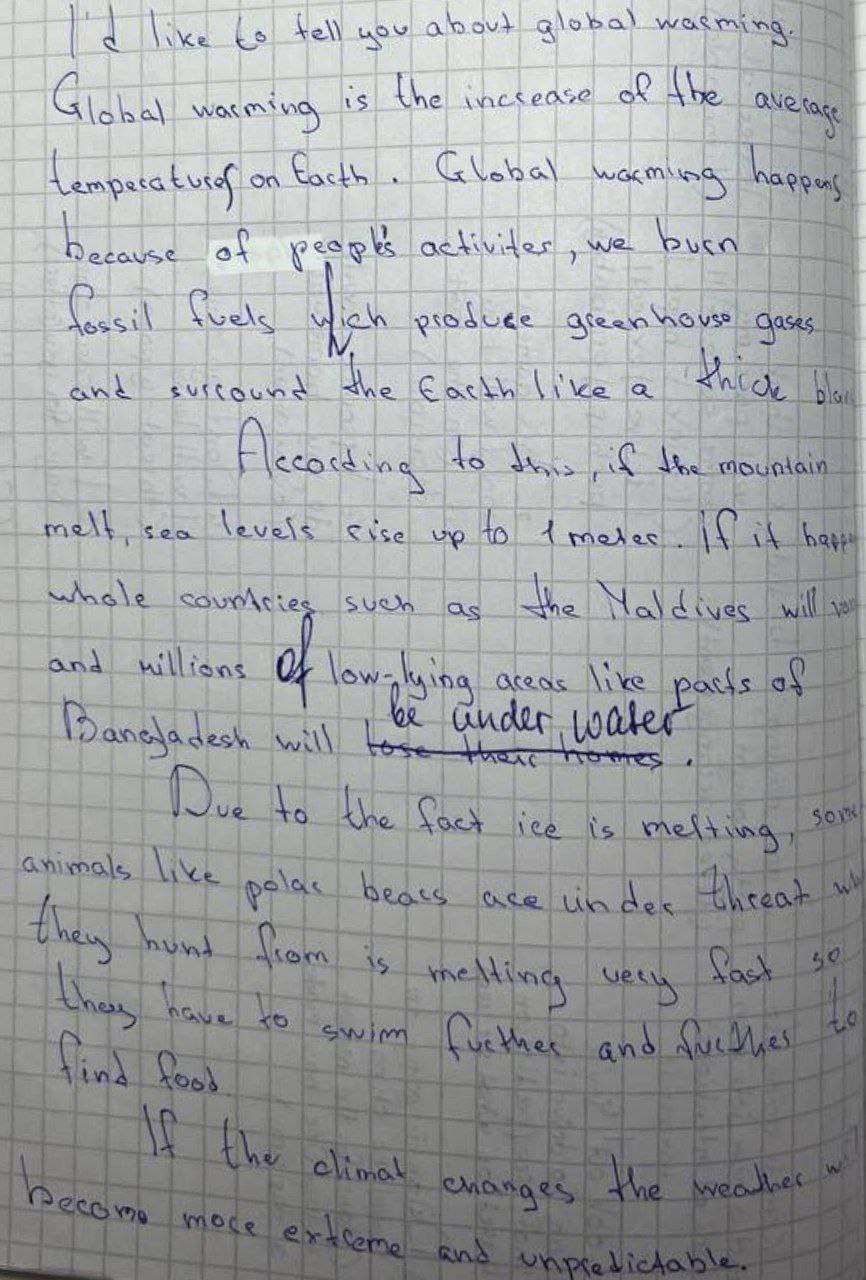 I'd like to tell you about global warming.
Global warming is the increase of the average
temperatures on Earth. Global warming happens
because of people's activites, we burn
fossil fuels wich produce greenhouse gases
and surround the Earth like a thick
According to this, if the mountain
melt, sea levels rise up to 1 meter. If it
whole countries such as the Maldives will
and millions of low-lying areas like parts of
be under water
Bangladesh will lose their homes.
Due to the fact ice is melting,
animals like polar bears are under threat
they hunt from is melting very fast so
they have to swim further and further to
find food
If the climat changes the weather
become more extreme and unpredictable.